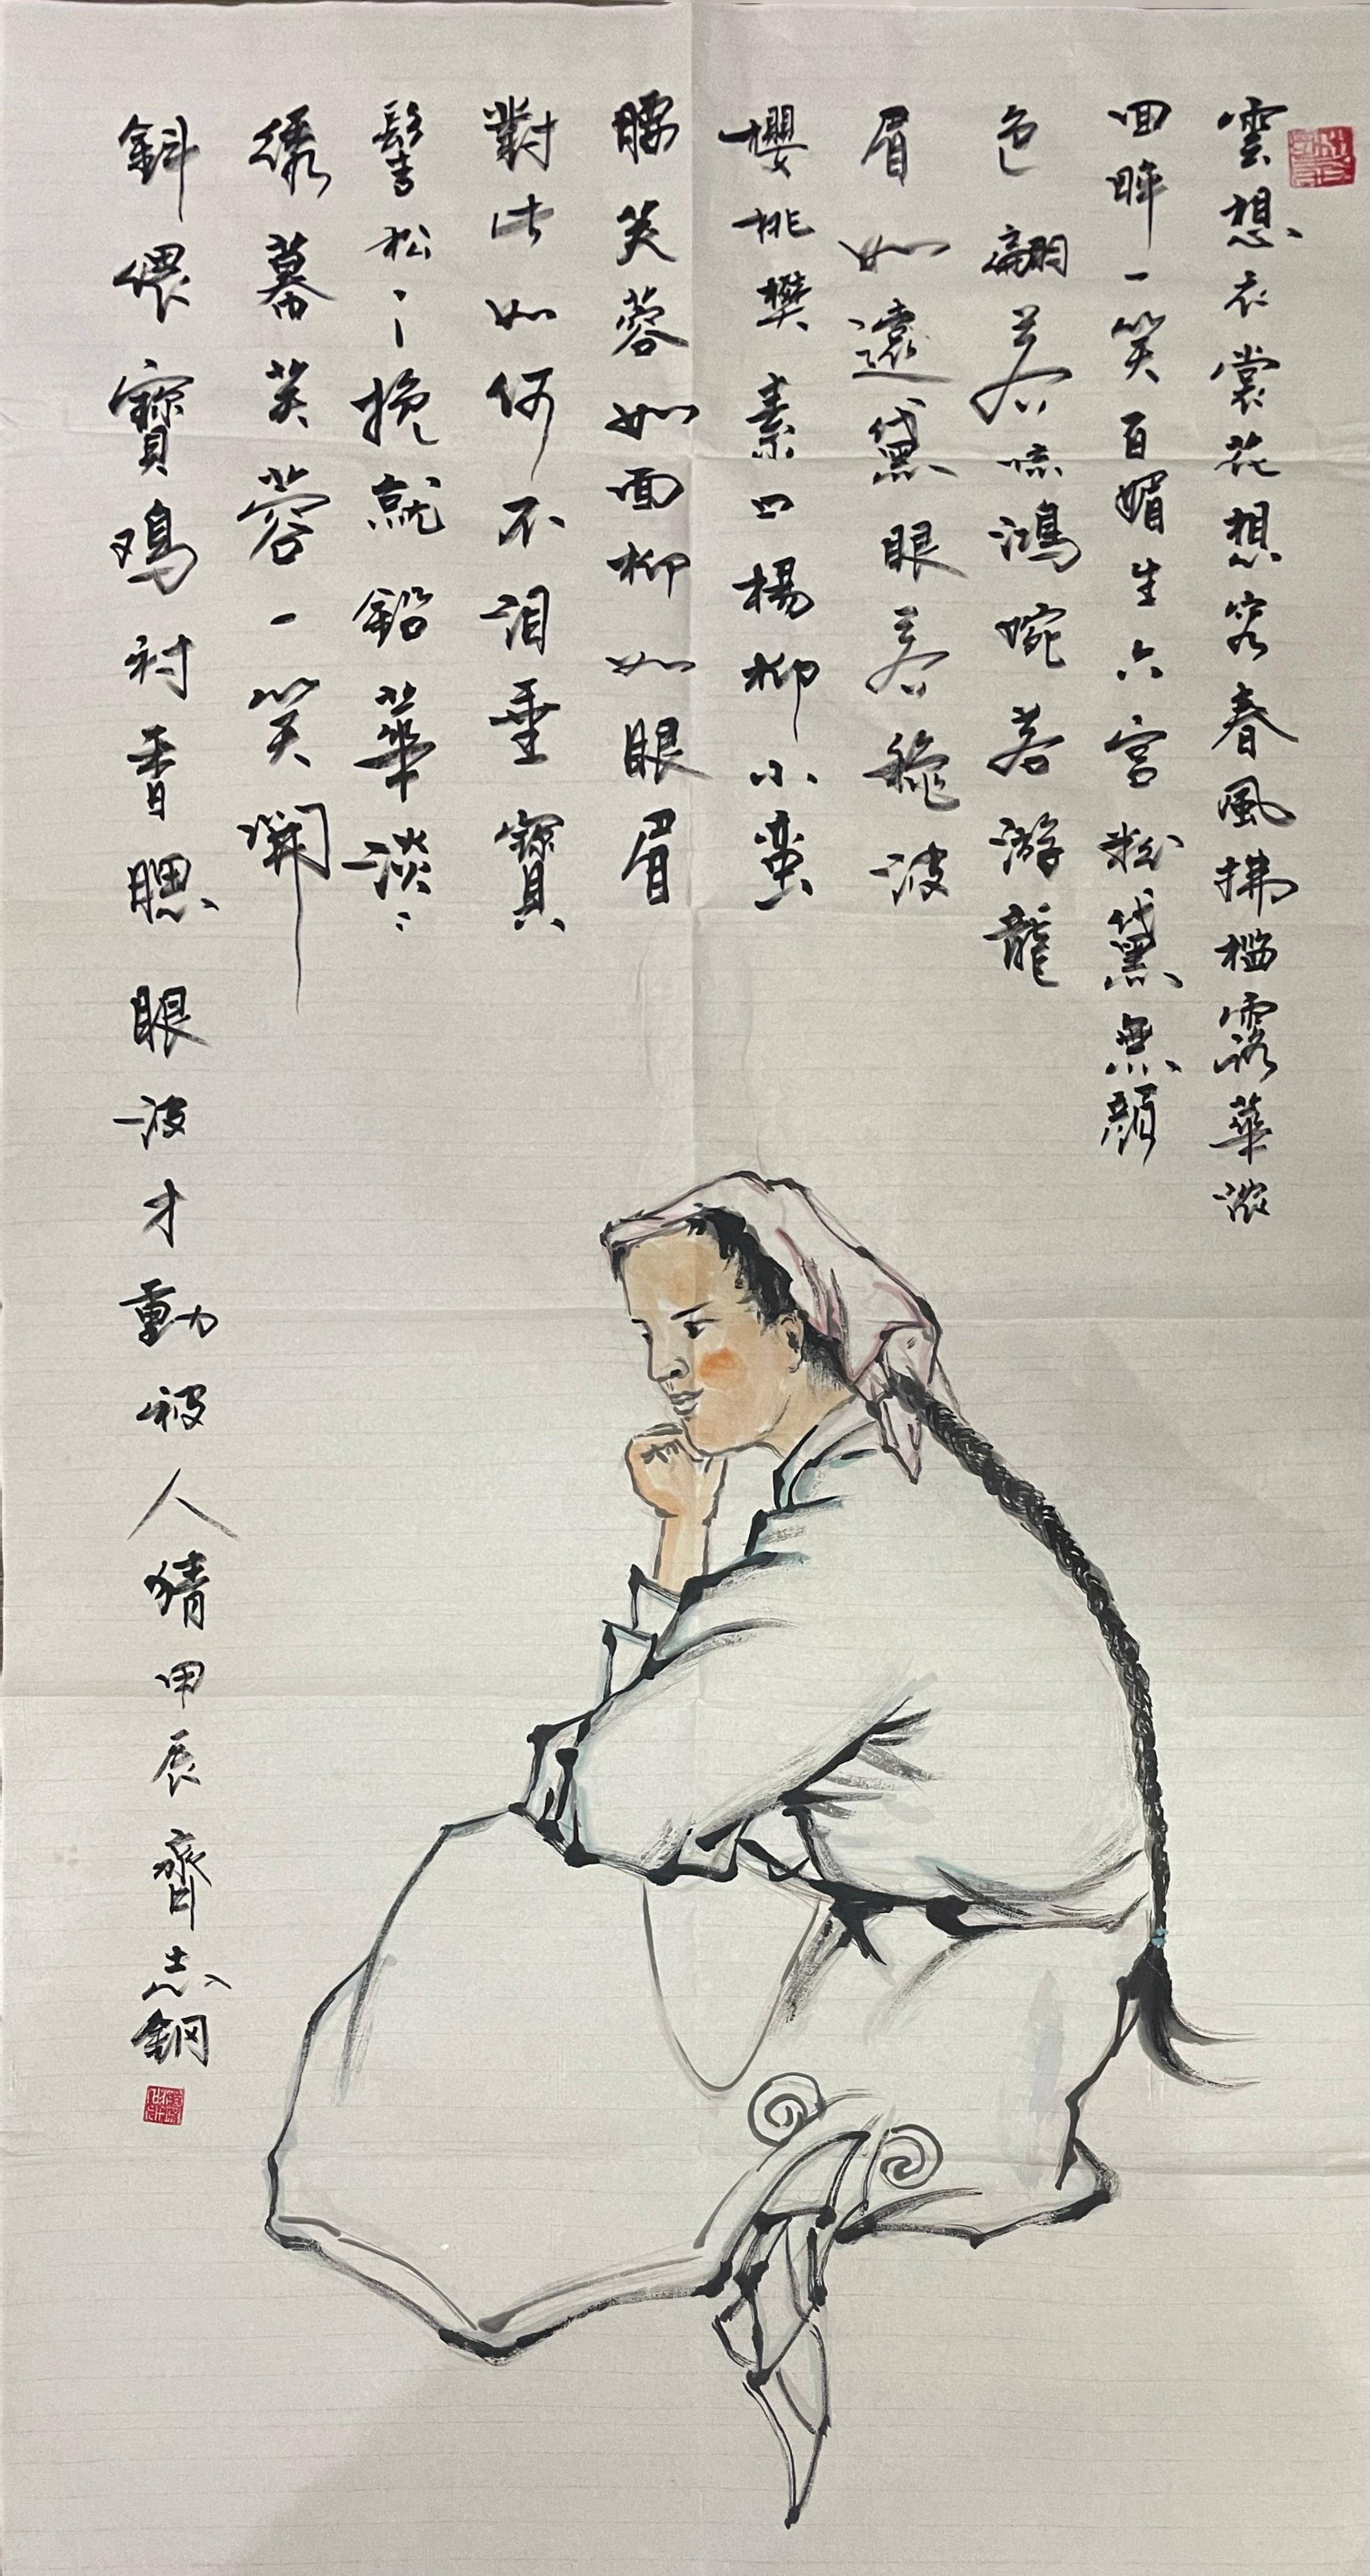 雲想衣裳花想容春風拂槛露華浓
回眸一笑百媚生六宮粉黛無顏
色翩若惊鴻婉若游龍
眉如遠黛眼若穐波
櫻桃樊素口楊柳小蛮
腰芙蓉如面柳如眼眉
對此如何不泪垂寶
髻松松挽就鉛華淡淡
綉幕芙蓉一笑開
斜偎寶鸡衬香腮眼波才動被人猜甲辰齊志鋼